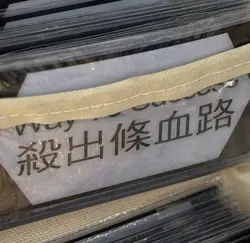 Way to Success
殺出條血路